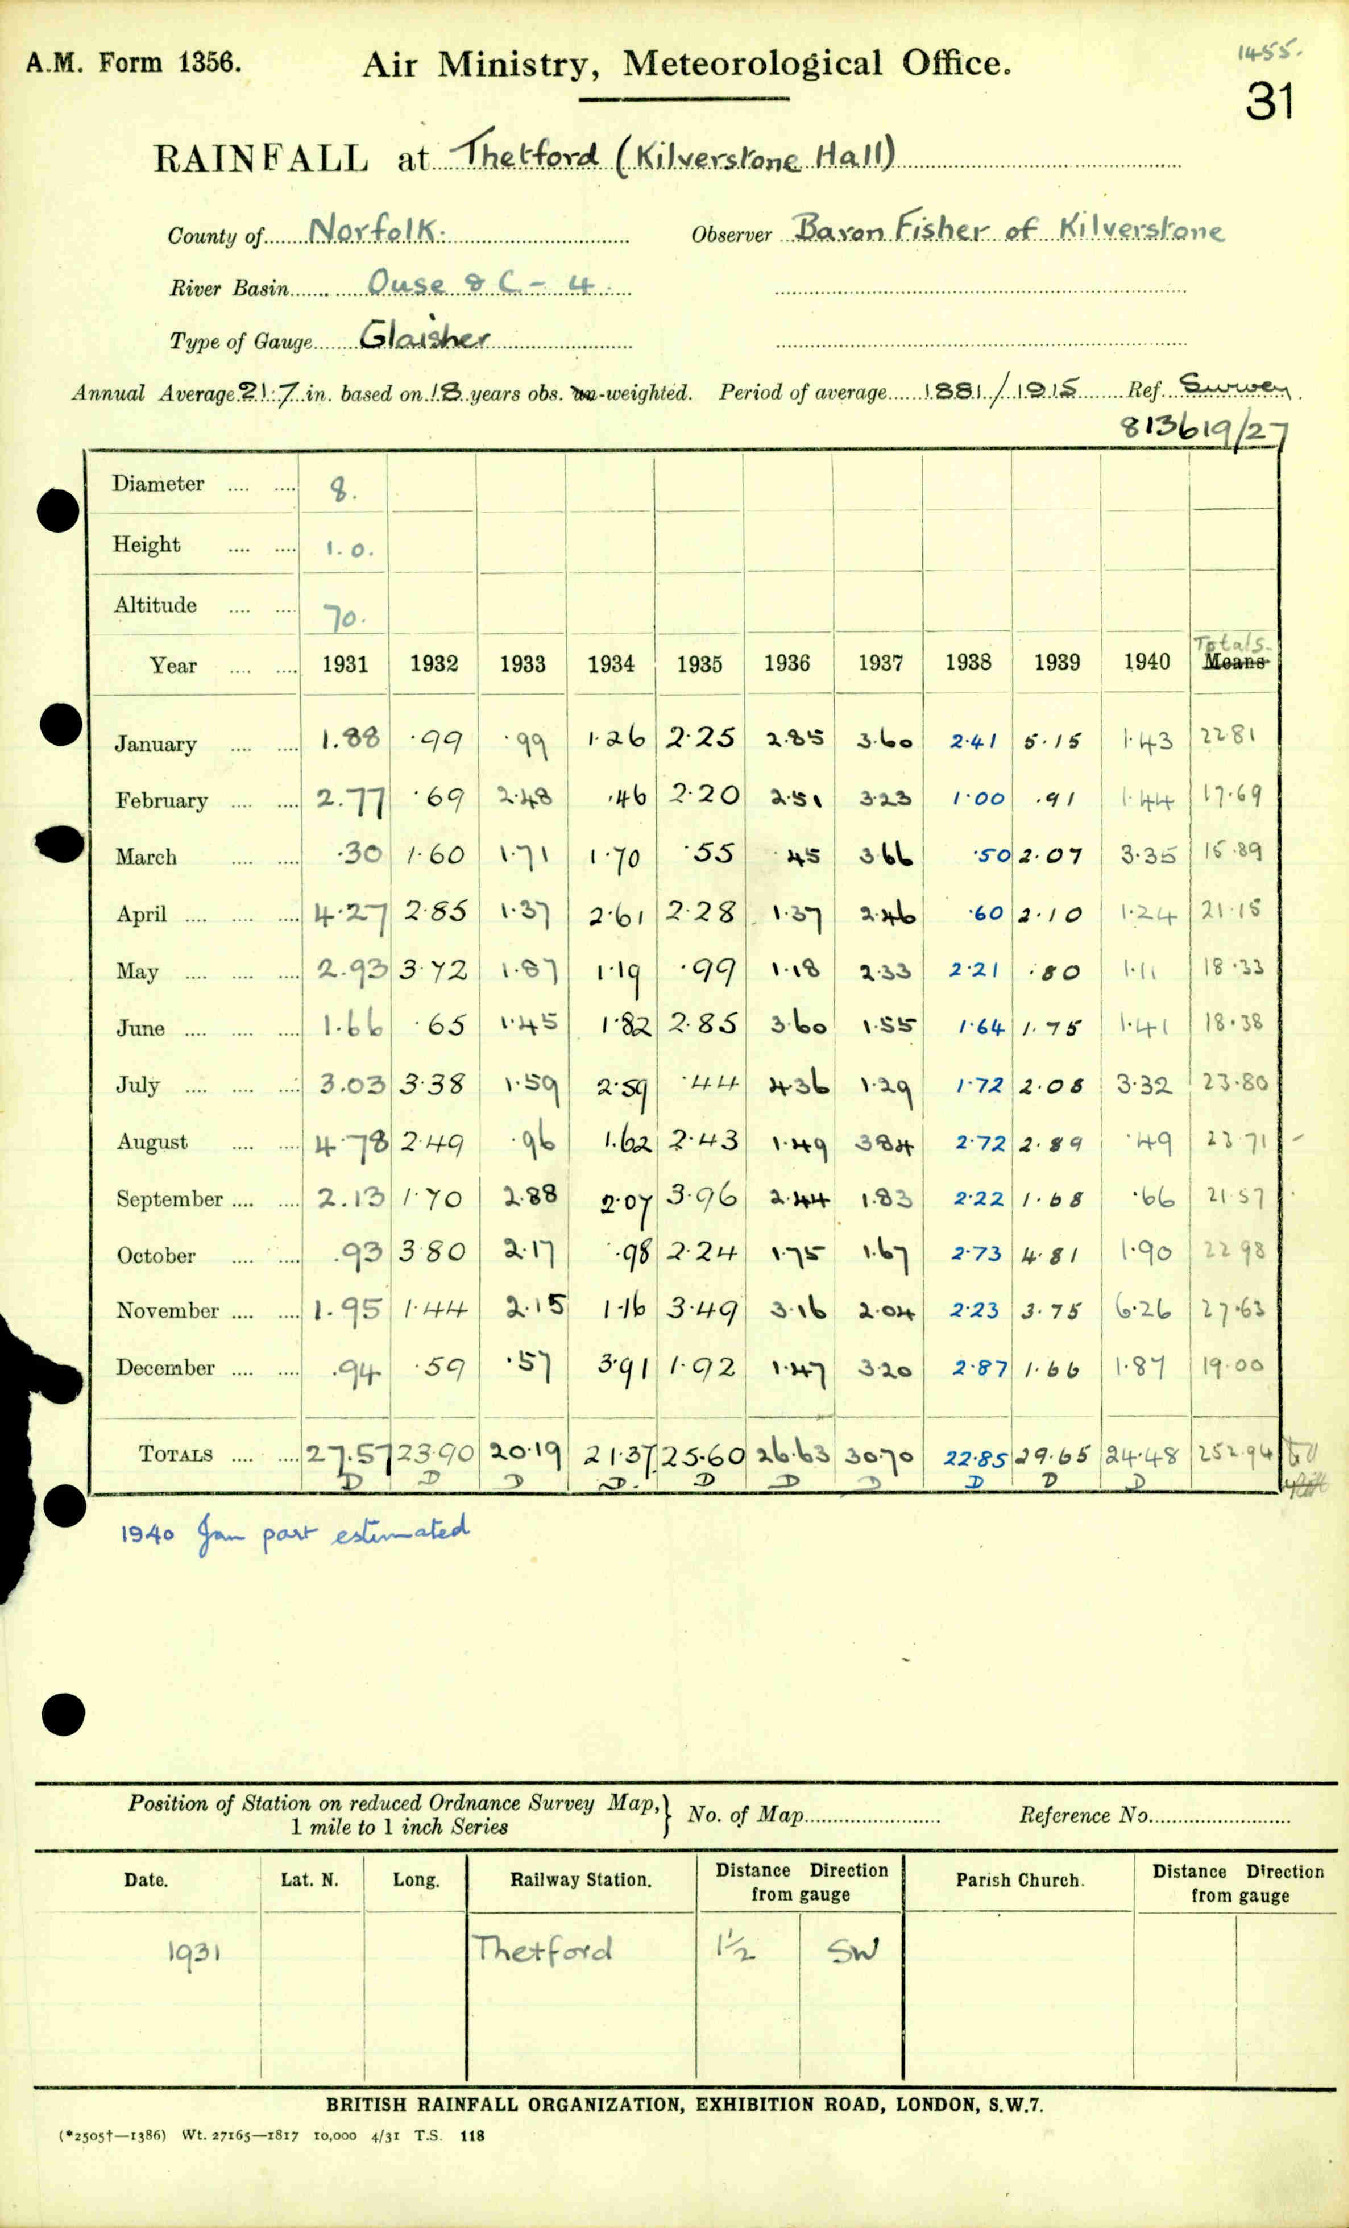 1455.
A.M. Form 1356. Air Ministry, Meteorological Office.
31
RAINFALL at Thetford (Kilverstone Hall)
County of Norfolk. Observer Baron Fisher of Kilverstone
River Basin Ouse & C - 4
Type of Gauge Glaisher
Annual Average 21.7 in. based on 18 years obs. un-weighted. Period of average 1881/1915 Ref. Survey
813619/27
Diameter .... .... 8.
Height .... .... 1.0.
Altitude .... .... 70.
Totals.
Year .... .... 1931 1932 1933 1934 1935 1936 1937 1938 1939 1940 Means
January .... .... 1.88 .99 .99 1.26 2.25 2.85 3.60 2.41 5.15 1.43 22.81
February .... .... 2.77 .69 2.48 .46 2.20 2.51 3.23 1.00 .91 1.44 17.69
March .... .... .30 1.60 1.71 1.70 .55 .45 3.66 .50 2.07 3.35 15.89
April .... .... .... 4.27 2.85 1.37 2.61 2.28 1.37 2.46 .60 2.10 1.24 21.15
May .... .... .... 2.93 3.72 1.87 1.19 .99 1.18 2.33 2.21 .80 1.11 18.33
June .... .... .... 1.66 .65 1.45 1.82 2.85 3.60 1.55 1.64 1.75 1.41 18.38
July .... .... .... 3.03 3.38 1.59 2.59 .44 4.36 1.29 1.72 2.08 3.32 23.80
August .... .... 4.78 2.49 .96 1.62 2.43 1.49 3.84 2.72 2.89 .49 23.71 -
September .... .... 2.13 1.70 2.88 2.07 3.96 2.44 1.83 2.22 1.68 .66 21.57
October .... .... .93 3.80 2.17 .98 2.24 1.75 1.67 2.73 4.81 1.90 22.98
November .... .... 1.95 1.44 2.15 1.16 3.49 3.16 2.04 2.23 3.75 6.26 27.63
December .... .... .94 .59 .57 3.91 1.92 1.47 3.20 2.87 1.66 1.87 19.00
TOTALS .... .... 27.57 23.90 20.19 21.37 25.60 26.63 30.70 22.85 29.65 24.48 252.94
D D D D. D D D D D D
1940 Jan part estimated
Position of Station on reduced Ordnance Survey Map,} No. of Map Reference No.
1 mile to 1 inch Series
Date. Lat. N. Long. Railway Station. Distance Direction from gauge Parish Church. Distance Direction from gauge
1931 Thetford 1½ SW
BRITISH RAINFALL ORGANIZATION, EXHIBITION ROAD, LONDON, S.W.7.
(*2505†—1386) Wt. 27165—1817 10,000 4/31 T.S. 118